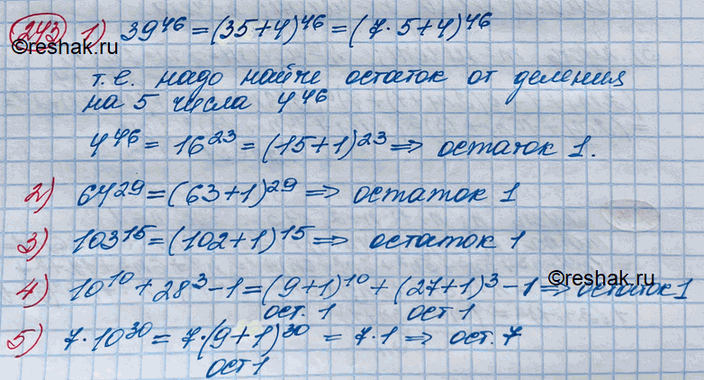 243 1) 39^46 = (35+4)^46 = (7·5+4)^46
©reshak.ru
т.е. надо найти остаток от деления
на 5 числа 4^46
4^46 = 16^23 = (15+1)^23 ⇒ остаток 1.
2) 64^29 = (63+1)^29 ⇒ остаток 1
3) 103^15 = (102+1)^15 ⇒ остаток 1
©reshak.ru
4) 10^10 + 28^3 - 1 = (9+1)^10 + (27+1)^3 - 1 ⇒ остаток 1
ост. 1 ост 1
5) 7·10^30 = 7·(9+1)^30 = 7·1 ⇒ ост. 7
ост 1